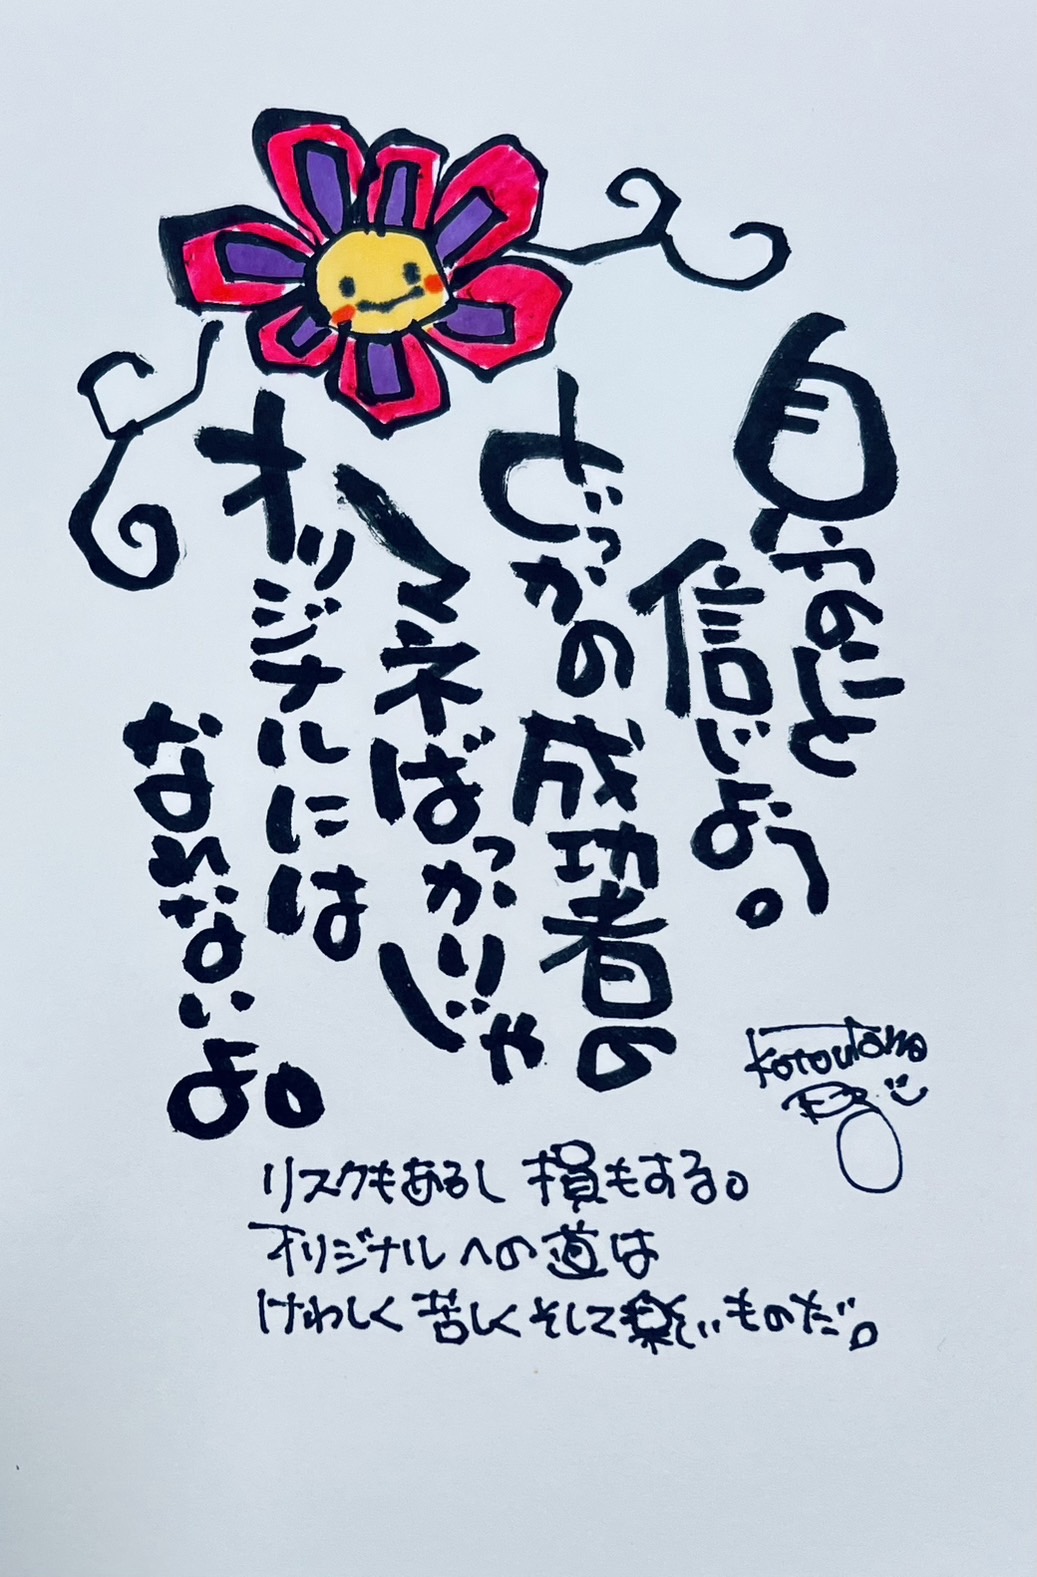 自分のこと
信じよう。
どっかの成功者の
マネばっかりじゃ
オリジナルには
なれないよ。
KotouTano
リスクもあるし 損もする。
オリジナルへの道は
けわしく 苦しく そして楽しいものだ。